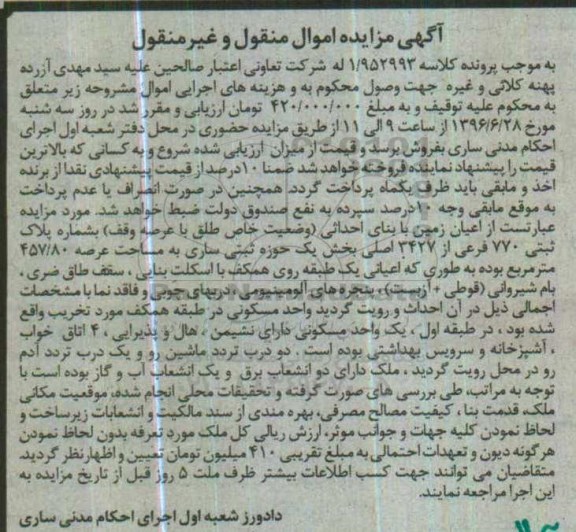 آگهی مزایده اموال منقول و غیر منقول
به موجب پرونده کلاسه ۱/۹۵۲۹۹۳ له شرکت تعاونی اعتبار صالحین علیه سید مهدی آزرده
پهنه کلائی و غیره جهت وصول محکوم به و هزینه های اجرایی اموال مشروحه زیر متعلق
به محکوم علیه توقیف و به مبلغ ۴۲۰/۰۰۰/۰۰۰ تومان ارزیابی و مقرر شد در روز سه شنبه
مورخ ۱۳۹۶/۶/۲۸ از ساعت ۹ الی ۱۱ از طریق مزایده حضوری در محل دفتر شعبه اول اجرای
احکام مدنی ساری بفروش برسد و قیمت از میزان ارزیابی شده شروع و به کسانی که بالاترین
قیمت را پیشنهاد نماینده فروخته خواهد شد ضمنا ۱۰درصد از قیمت پیشنهادی نقدا از برنده
اخذ و مابقی باید ظرف یکماه پرداخت گردد. همچنین در صورت انصراف یا عدم پرداخت
به موقع مابقی وجه ۱۰درصد سپرده به نفع صندوق دولت ضبط خواهد شد. مورد مزایده
عبارتست از اعیان زمین با بنای احداثی (وضعیت خاص طلق یا عرصه وقف) بشماره پلاک
ثبتی ۷۷۰ فرعی از ۳۴۲۷ اصلی بخش یک حوزه ثبتی ساری به مساحت عرصه ۴۵۷/۸۰
مترمربع بوده به طوری که اعیانی یک طبقه روی همکف با اسکلت بنایی ، سقف طاق ضربی ،
بام شیروانی (قوطی + آزبست)، پنجره های آلومینیومی ، دربهای چوبی و فاقد نما با مشخصات
اجمالی ذیل در آن احداث و رویت گردید واحد مسکونی در طبقه همکف مورد تخریب واقع
شده بود ، در طبقه اول ، یک واحد مسکونی دارای نشیمن ، هال و پذیرایی ، ۴ اتاق خواب
، آشپزخانه و سرویس بهداشتی بوده است . دو درب تردد ماشین رو و یک درب تردد آدم
رو در محل رویت گردید ، ملک دارای دو انشعاب برق و یک انشعاب آب و گاز بوده است با
توجه به مراتب، طی بررسی های صورت گرفته و تحقیقات محلی انجام شده، موقعیت مکانی
ملک، قدمت بنا ، کیفیت مصالح مصرفی، بهره مندی از سند مالکیت و انشعابات زیرساخت و
لحاظ نمودن کلیه جهات و جوانب موثر، ارزش ریالی کل ملک مورد تعرفه بدون لحاظ نمودن
هرگونه دیون و تعهدات احتمالی به مبلغ تقریبی ۴۱۰ میلیون تومان تعیین و اظهار نظر گردید.
متقاضیان می توانند جهت کسب اطلاعات بیشتر ظرف ملت ۵ روز قبل از تاریخ مزایده به
این اجرا مراجعه نمایند.
دادورز شعبه اول اجرای احکام مدنی ساری